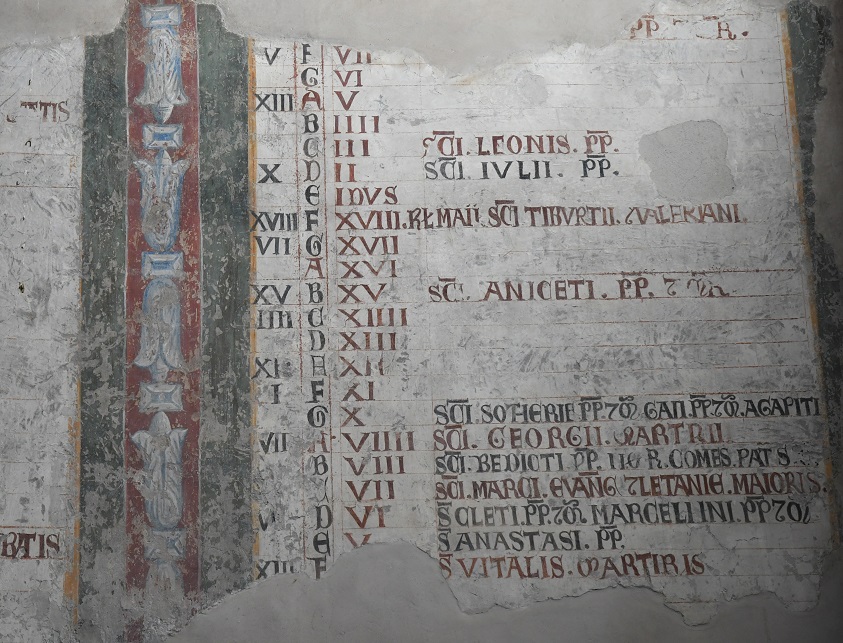 PP. R.
TIS
V F VII
G VI
XIII A V
B IIII
C III SCI. LEONIS. PP.
X D II SCI. IVLII. PP.
E IDVS
XVIII F XVIII. KL MAII. SCI TIBVRTII. VALERIANI.
VII G XVII
A XVI
XV B XV SCI. ANICETI. PP. 7 MR
IIII C XIIII
D XIII
XII
XI
I F XI
G X SCI. SOTHERIE PP. 7 M. GAII. PP. 7 M. AGAPITI
VII A VIIII SCI. GEORGII. MARTRII
B VIII SCI. BEDICTI PP. II R. COMES. PAT S
VII SCI. MARCI. EVANG 7 LETANIE. MAIORIS.
D VI S CLETI. PP. 7 M. MARCELLINI. PP 7 M
E V S ANASTASI. PP.
XIII F S VITALIS. MARTIRIS
RTIS